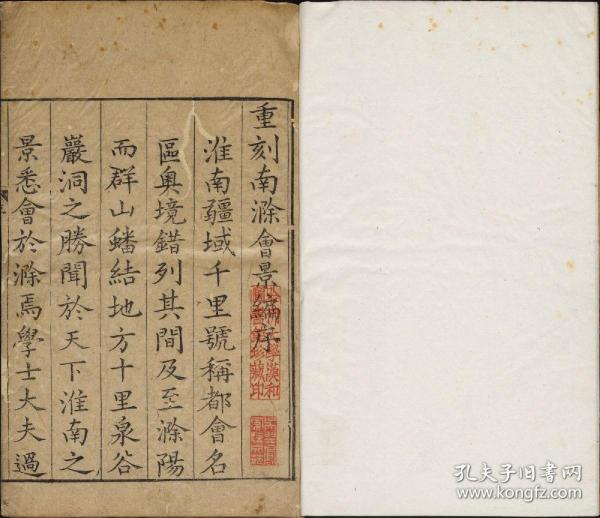 重刻南滁會景編序
淮南疆域千里號稱都會名
區奧境錯列其間及至滁陽
而群山蟠結地方十里泉谷
巖洞之勝聞於天下淮南之
景悉會於滁焉學士大夫過
孔夫子旧书网
www.kongfz.com